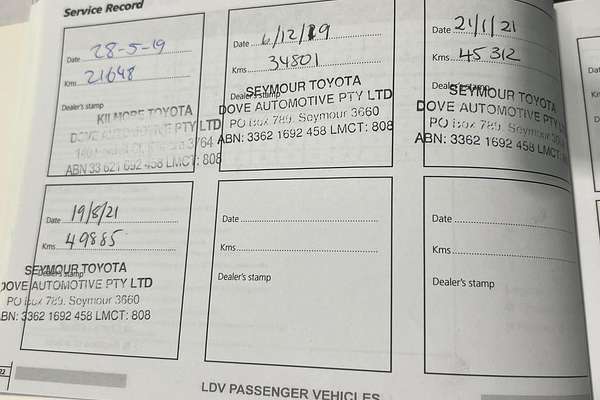 Service Record
Date 28-5-19
Kms 21648
Dealer's stamp
KILMORE TOYOTA
DOVE AUTOMOTIVE PTY LTD
3764
ABN 33 621 692 458 LMCT: 808
Date 6/12/19
Kms 34801
Dealer's stamp
SEYMOUR TOYOTA
DOVE AUTOMOTIVE PTY LTD
PO Box 789, Seymour 3660
ABN: 3362 1692 458 LMCT: 808
Date 21/1/21
Kms 45312
Dealer's stamp
SEYMOUR TOYOTA
DOVE AUTOMOTIVE PTY LTD
PO Box 789, Seymour 3660
ABN: 3362 1692 458 LMCT: 808
Date 19/8/21
Kms 49885
Dealer's stamp
SEYMOUR TOYOTA
DOVE AUTOMOTIVE PTY LTD
PO Box 789, Seymour 3660
ABN: 3362 1692 458 LMCT: 808
Date
Kms
Dealer's stamp
Date
Kms
Dealer's stamp
22
LDV PASSENGER VEHICLES